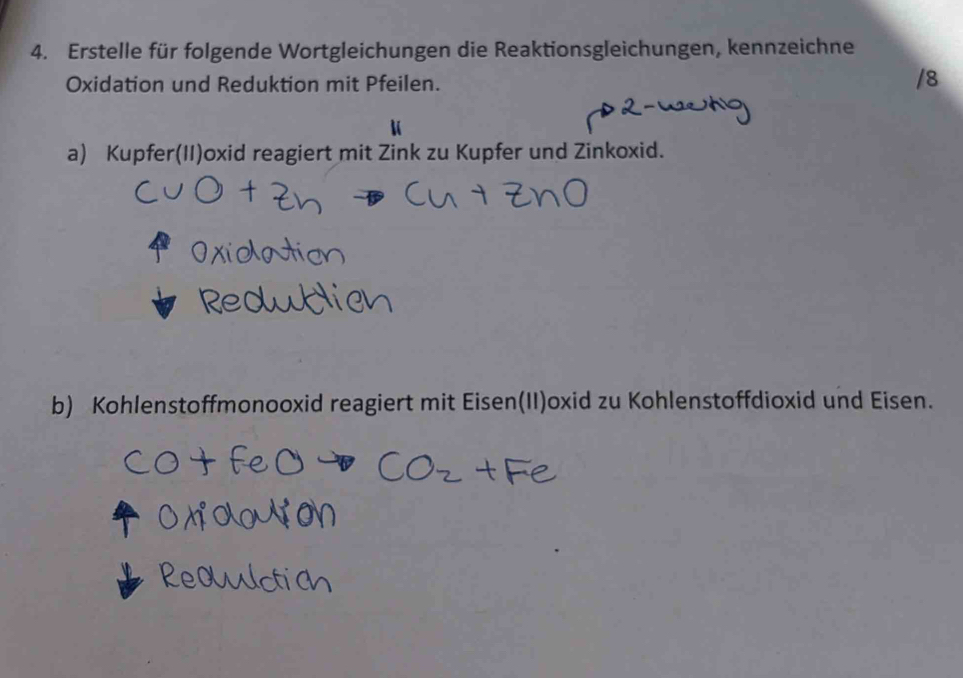 4. Erstelle für folgende Wortgleichungen die Reaktionsgleichungen, kennzeichne
Oxidation und Reduktion mit Pfeilen.
/8
II
→ 2-wertig
a) Kupfer(II)oxid reagiert mit Zink zu Kupfer und Zinkoxid.
CuO + Zn → Cu + ZnO
↑ Oxidation
↓ Reduktion
b) Kohlenstoffmonooxid reagiert mit Eisen(II)oxid zu Kohlenstoffdioxid und Eisen.
CO + FeO → CO₂ + Fe
↑ Oxidation
↓ Reduktion